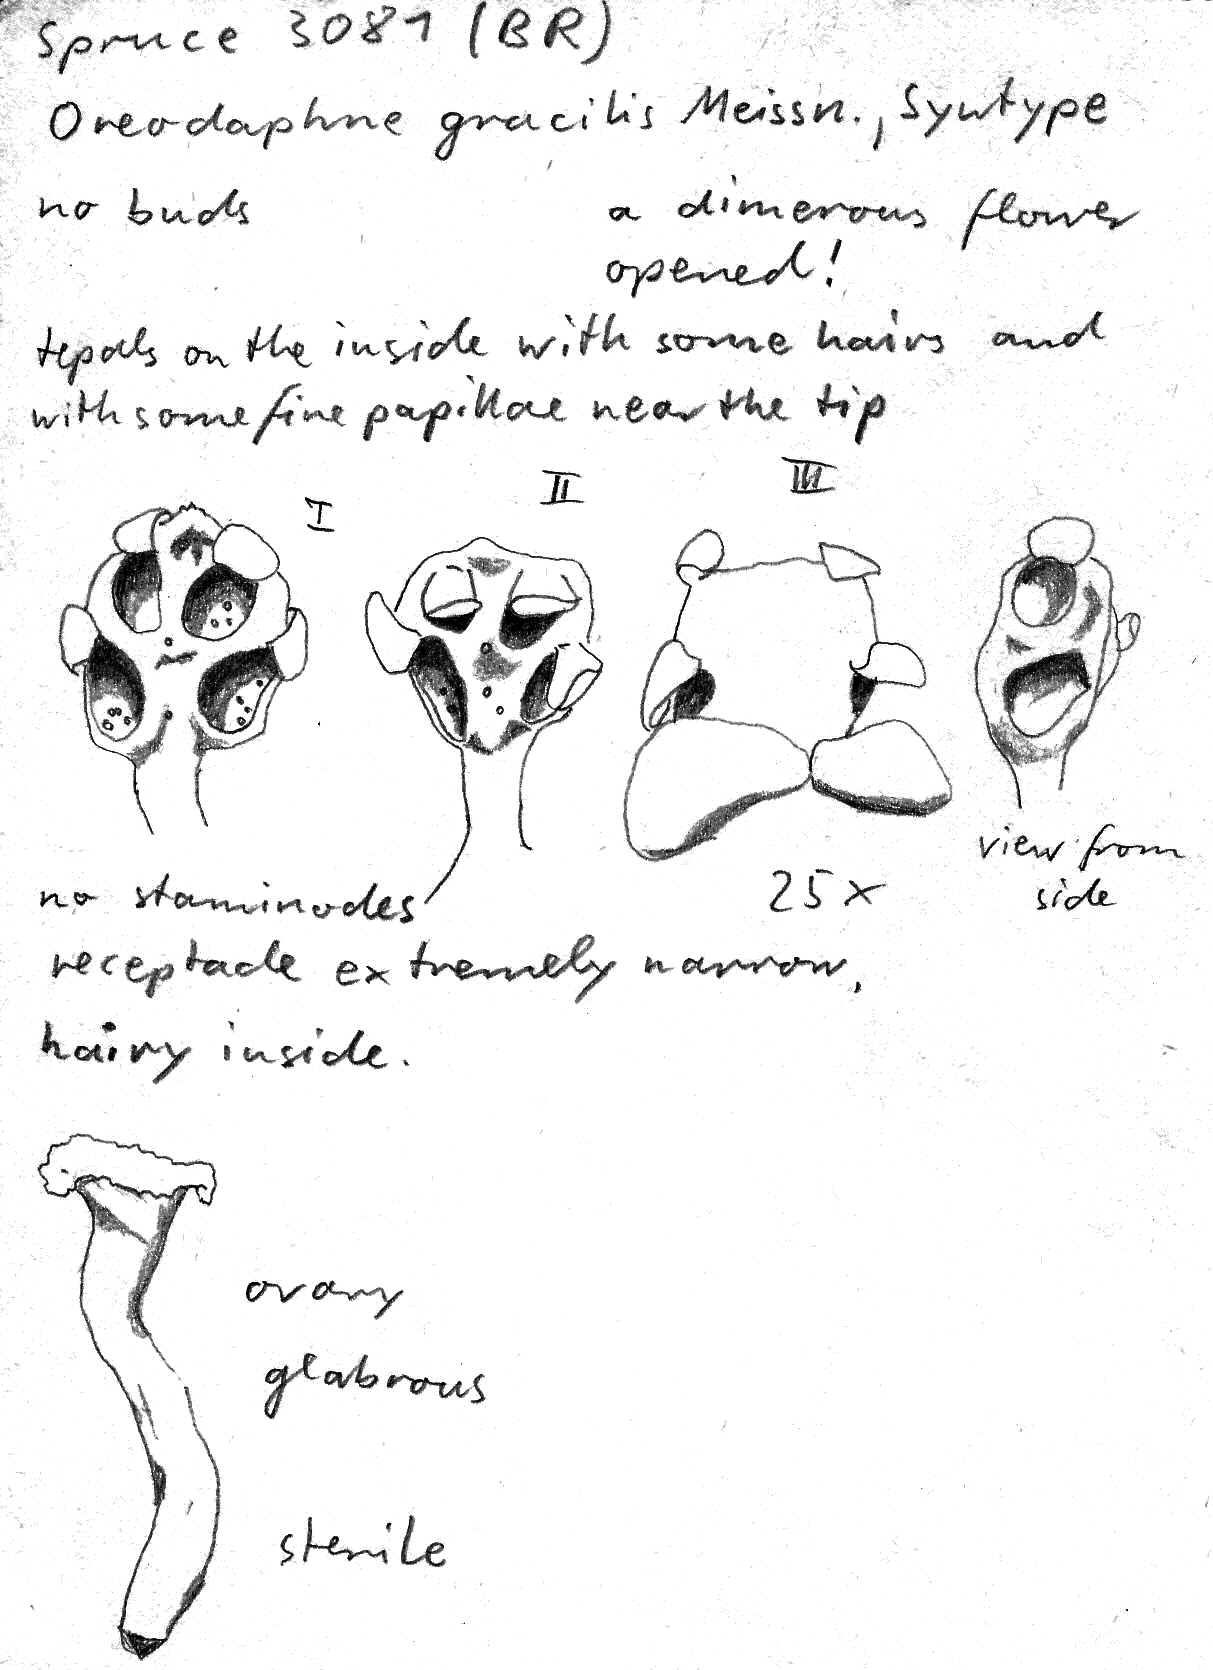 Spruce 3081 (BR)
Oreodaphne gracilis Meissn., Syntype
no buds
a dimerous flower
opened!
tepals on the inside with some hairs and
with some fine papillae near the tip
I
II
III
view from
side
25x
no staminodes
receptacle extremely narrow,
hairy inside.
ovary
glabrous
sterile